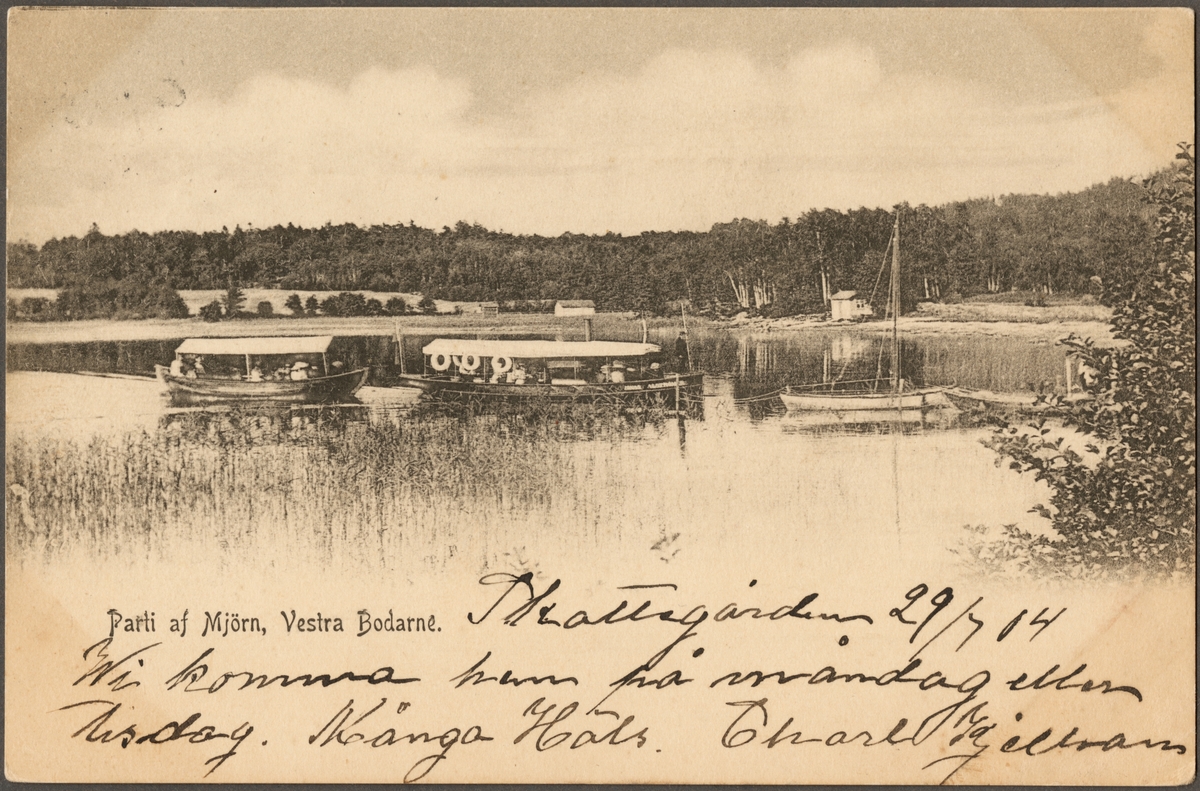 Parti af Mjörn, Vestra Bodarne.
29/7 04
Wi komma hem på måndag eller
tisdag. Många Häls.